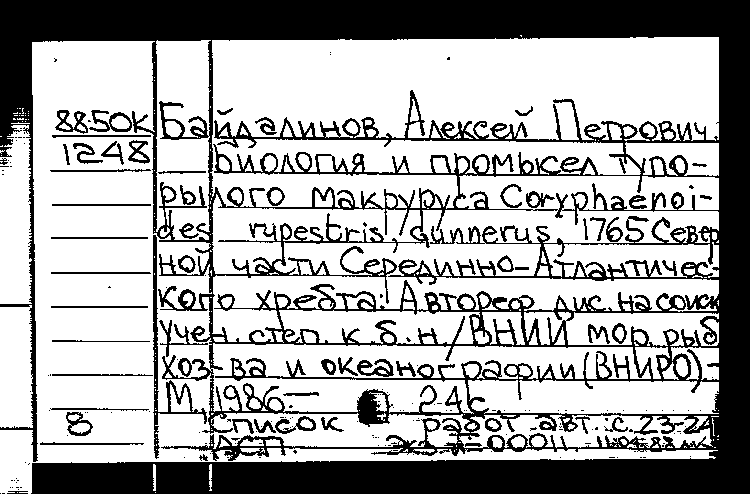 88-50к Байдалинов, Алексей Петрович.
1248 Биология и промысел тупо-
рылого макруруса Coryphaenoi-
des rupestris, Gunnerus, 1765 Север
ной части Серединно-Атлантичес-
кого хребта: Автореф. дис. на соиск
учен. степ. к. б. н. / ВНИИ мор. рыб
хоз-ва и океанографии (ВНИРО) -
М., 1986.- 24 с.
8 Список работ авт. с. 23-24